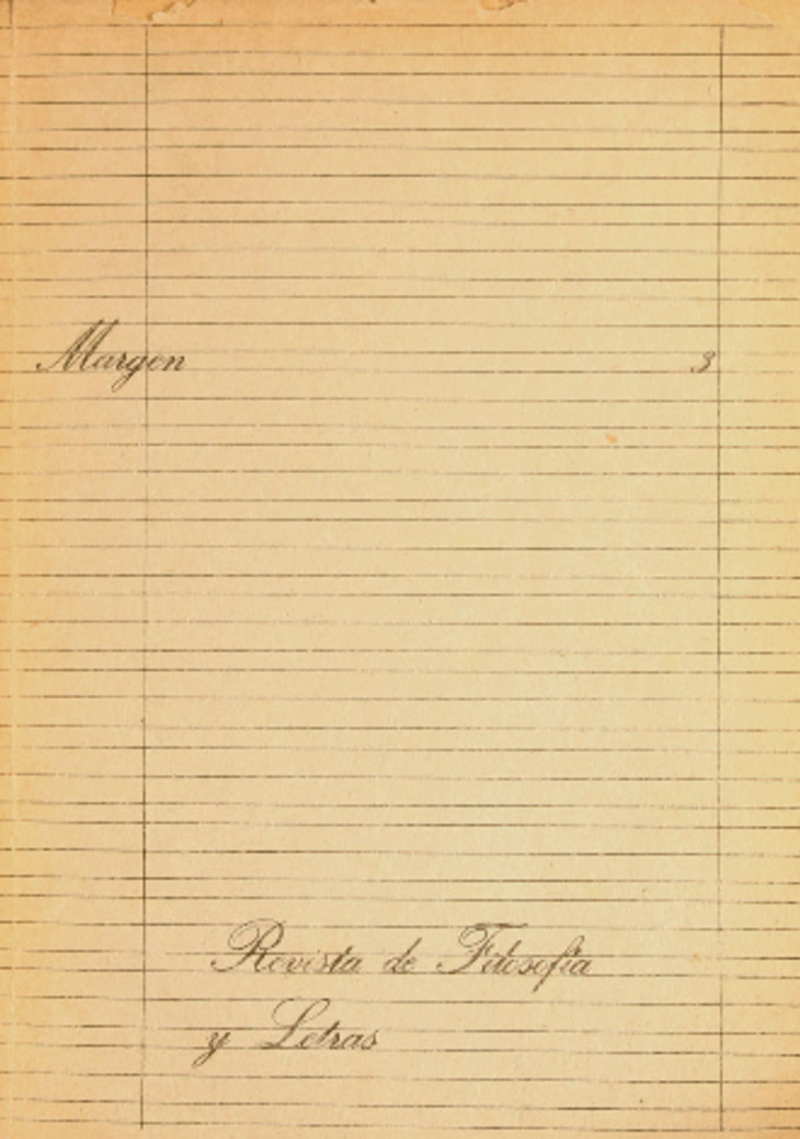 Margen 3
Revista de Filosofía
y Letras